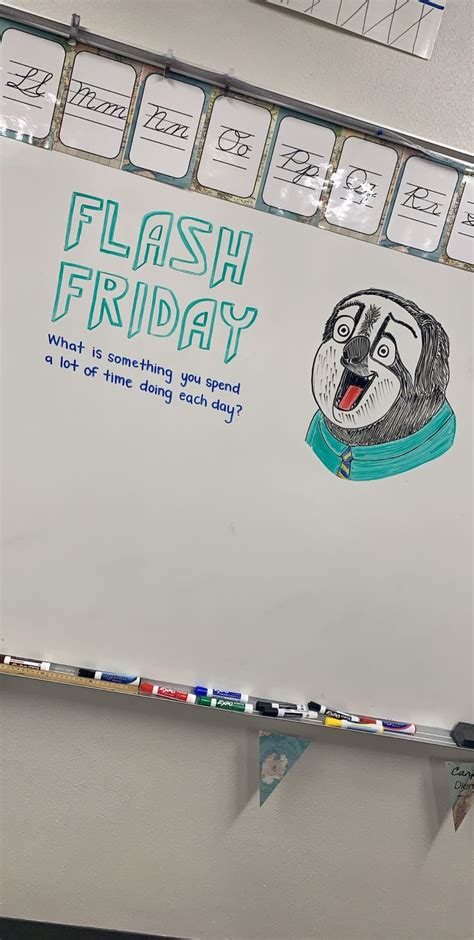 Ll Mm Nn Oo Pp Qq Rr
FLASH
FRIDAY
What is something you spend
a lot of time doing each day?
EXPO
EXPO